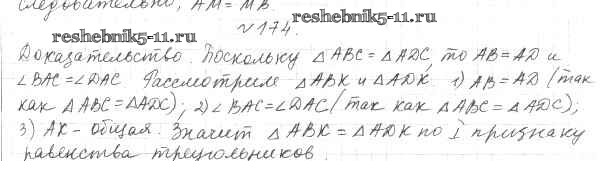 Следовательно, AM = MB.
reshebnik5-11.ru
№174.
reshebnik5-11.ru
Доказательство. Поскольку △ABC = △ADC, то AB = AD и
∠BAC = ∠DAC. Рассмотрим △ABK и △ADK, 1) AB = AD (так
как △ABC = △ADC); 2) ∠BAC = ∠DAC (так как △ABC = △ADC);
3) AK - общая. Значит △ABK = △ADK по I признаку
равенства треугольников.